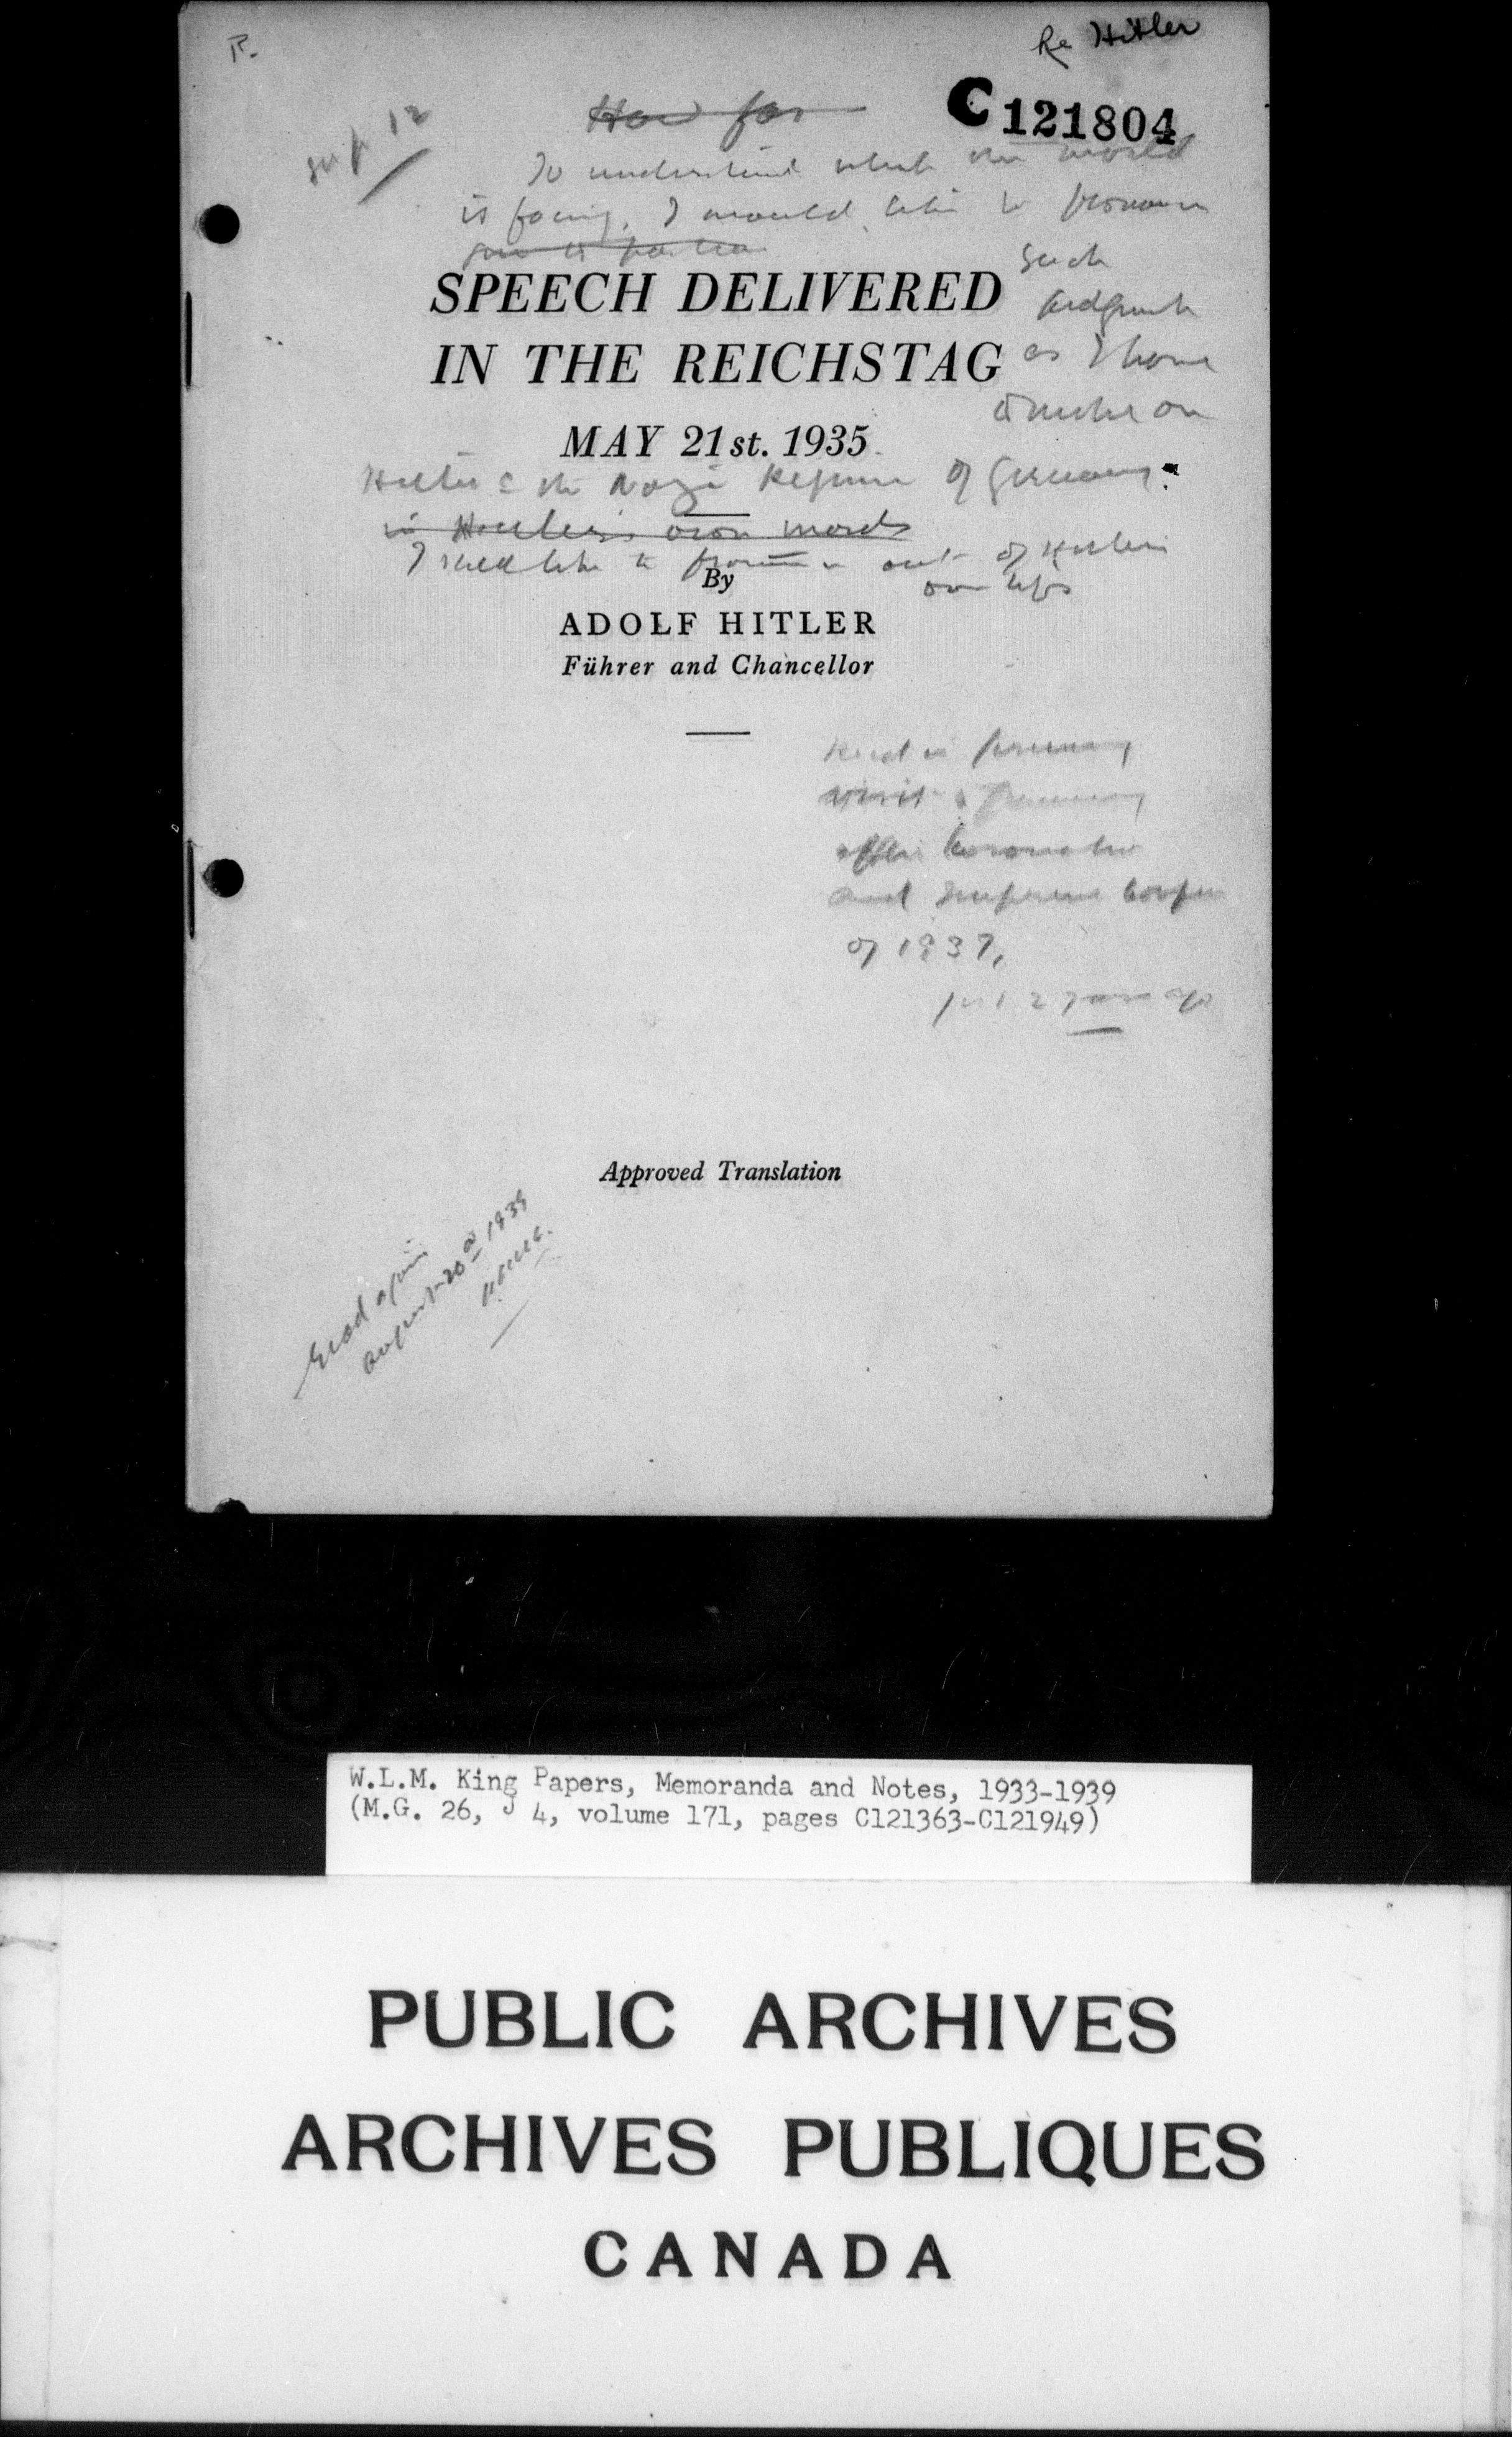 R.
Re Hitler
C121804
How far
To understand what the world
is facing, I would like to pronounce
SPEECH DELIVERED
such
judgment
IN THE REICHSTAG
as I have
to make on
MAY 21st. 1935.
Hitler & the Nazi Regime of Germany.
in Hitler's own words
I would like to out of Hitler's
own lips
By
ADOLF HITLER
Führer and Chancellor
Read in Germany
visit Germany
after Coronation
and Imperial Confer
of 1937,
just 2 years ago
Approved Translation
Read again
August 20 1939
W.L.M. King Papers, Memoranda and Notes, 1933-1939
(M.G. 26, J 4, volume 171, pages C121363-C121949)
PUBLIC ARCHIVES
ARCHIVES PUBLIQUES
CANADA